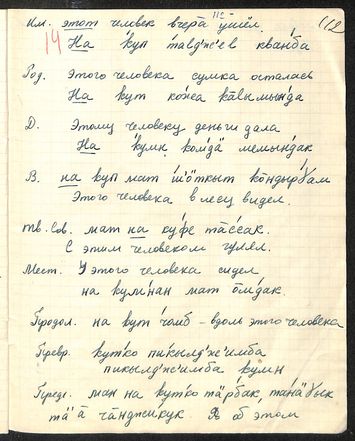 112
14
Им. этот человек вчера ушёл.
На ӄуп та́вд'җ'ев кван́ба
Род. этого человека сумка осталась
На ӄут ко́җа ка̄вымын́да
Д. Этому человеку деньги дала
На ӄумн ӄомд̄ӓ мемын́дак
В. на ӄуп мат ш'ӧтӄыт ко̄ндыр́ӽам
Этого человека в лесу видел.
Тв. Сов. мат на ӄуфе та̄ссак.
С этим человеком гулял.
Мест. У этого человека сидел
на ӄум́нан мат о̄м́дак
Продол. на ӄут чомб – вдоль этого человека
Превр. ӄут́ко пиӄылд'җ'имба
пиӄылд'җ'имба ӄумн
Предл. ман на ӄут́ко тӓрбак,
Я об этом